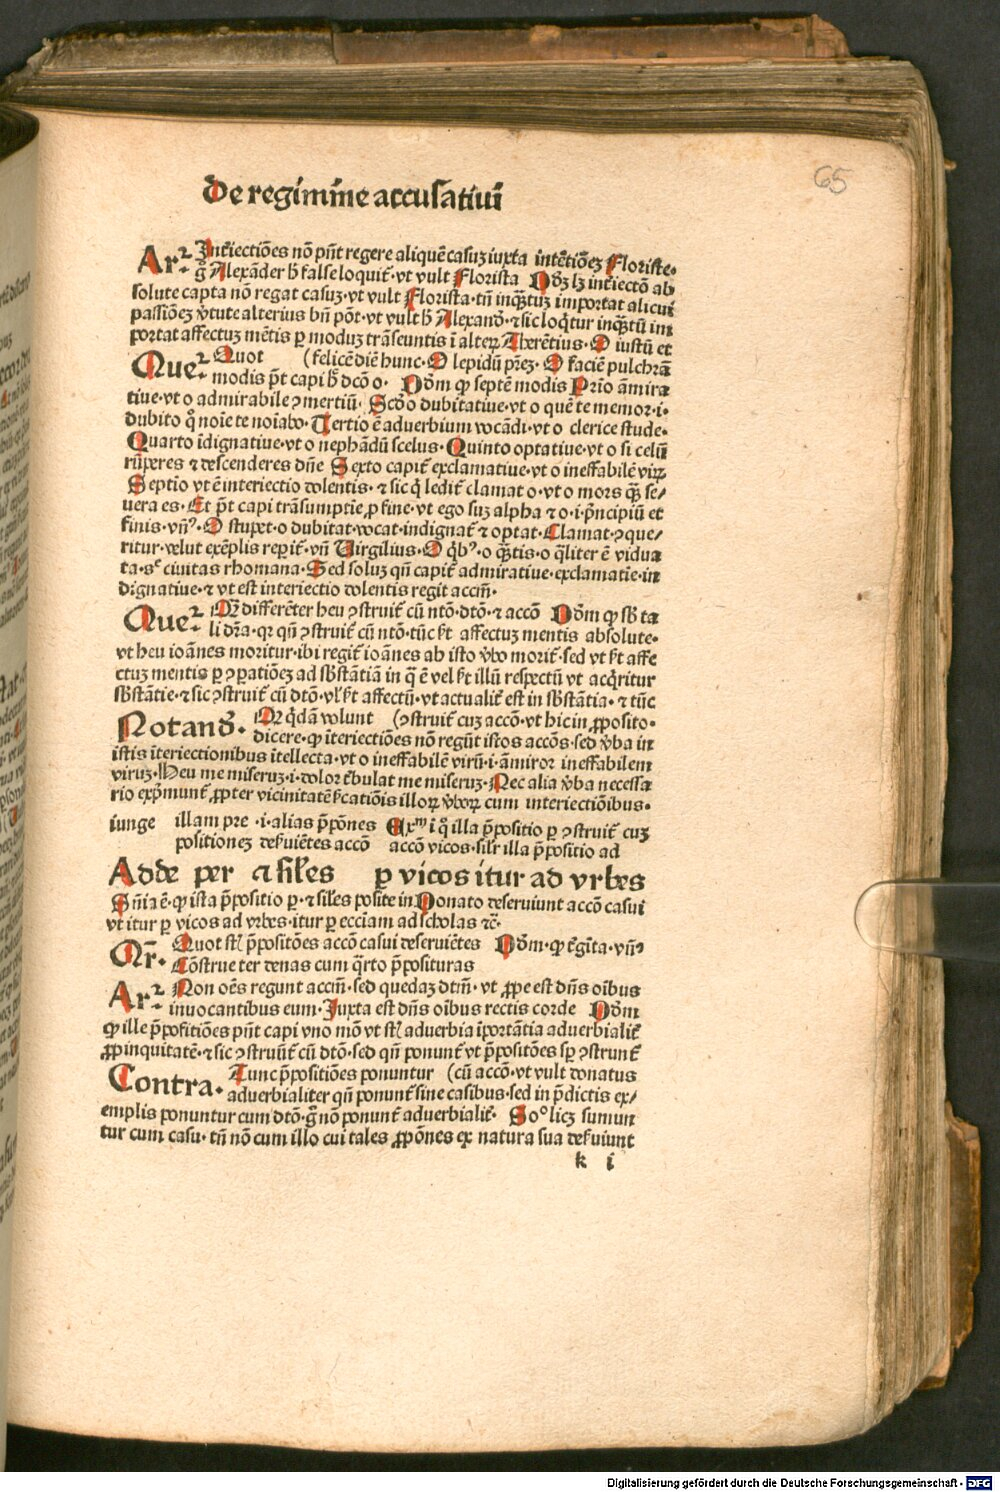 65
De regimine accusatiui
Arꝛ. Int̄iectiōes nō pn̄t regere aliquē casuʒ iuxta intētiōeʒ Floriste.
g̊ Alexāder ħ false loquit᷑. vt vult Florista Dōʒ lʒ int̄iectō ab
solute capta nō regat casuʒ. vt vult Florista. tn̄ inqꝫtuʒ importat alicui᷑
passiōeʒ v̄tute alterius bn̄ pōt. vt vult ħ Alexand̄. ⁊ sic loq̄tur inqꝫtū im
portat affectuʒ mētis ꝑ moduʒ trāseuntis ī alteꝝ Therētius. O iustū et
Queꝛ. Quot (felicē diē hunc. O lepidū pr̄eʒ. O faciē pulchrā
modis pn̄t capi ħ dcō o. Dōm ꝙ septē modis Prīo āmira
tiue. vt o admirabile ↄmertiū. Scd̄o dubitatiue. vt o quē te memor. i.
dubito q̊ noīe te noīabo. Tertio ē aduerbium vocādi. vt o clerice stude.
Quarto īdignatiue. vt o nephādū scelus. Quinto optatiue. vt o si celū
rūperes ⁊ descenderes dn̄e Sexto capit᷑ exclamatiue. vt o ineffabilē viꝝ
Septio vt ē interiectio dolentis. ⁊ sic q̄ ledit᷑ clamat o. vt o mors qꝫ se/
uera es. Et pn̄t capi trāsumptīe, ꝓ fine. vt ego suʒ alpha ⁊ o. i. pn̄cipiū et
finis. vn̄ꝰ. O stupet. o dubitat. vocat. indignat᷑ ⁊ optat. Clamat. ⁊ que/
ritur. velut exēplis repit᷑. vn̄ Virgilius. O q̊bꝰ. o qꝫtis. o qͣliter ē vidua
ta. sᶜ ciuitas rhomana. Sed soluʒ qn̄ capit᷑ admiratiue. exclamatīe. in
dignatiue. ⁊ vt est interiectio dolentis regit accm̄.
Queꝛ. Qꝛ differēter heu ↄstruit᷑ cū nt̄o. dt̄o. ⁊ accō Dōm ꝙ sb̄ ta
li dr̄a. qꝛ qn̄ ↄstruit᷑ cū nt̄o. tūc st̄ affectuʒ mentis absolute.
vt heu ioānes moritur. ibi regit᷑ ioānes ab isto v̄bo morit᷑. sed vt st̄ affe
ctuʒ mentis ꝑ ↄꝑatiōeʒ ad sb̄stātiā in q̄ ē vel st̄ illū respectū vt acq̄ritur
sb̄stātie. ⁊ sic ↄstruit᷑ cū dt̄o. vl̓ st̄ affectū. vt actualit᷑ est in sb̄stātia. ⁊ tūc
Notand̄. Qꝛ q̊dā volunt (ↄstruit᷑ cuʒ accō. vt hic in ꝓposito.
dicere. ꝙ īteriectiōes nō regūt istos accōs. sed v̄ba in
istis īteriectionibus ītellecta. vt o ineffabilē virū. i. āmiror ineffabilem
viruʒ. Heu me miseruʒ. i. dolor t̄bulat me miseruʒ. Nec alia v̄ba necessa
rio exp̄munt᷑. ꝓpter vicinitatē st̄catiōis illoꝝ v̄boꝝ cum interiectiōibus.
iunge illam pre . i. alias p̄pōnes Exᵐ ī q̊ illa p̄positio ꝑ ↄstruit᷑ cuʒ
positioneʒ deẜuiētes accō accō vicos. silr illa p̄positio ad
Adde per ⁊ sil̓es ꝑ vicos itur ad vrbes
Sn̄ia ē. ꝙ ista p̄positio ꝑ. ⁊ sil̓es posite in Donato deseruiunt accō casui
vt itur ꝑ vicos ad vrbes. itur ꝑ eccīam ad scholas ⁊c̄.
Qr̄. Quot st̄ p̄positōes accō casui deseruiētes Dōm. ꝙ t᷑gīta. vn̄ꝰ
Cōstrue ter denas cum q̄rto p̄posituras
Arꝛ. Non oēs regunt accm̄. sed quedaʒ dtm̄. vt ꝓpe est dn̄s oībus
inuocantibus eum. Juxta est dn̄s oībus rectis corde Dōm
ꝙ ille p̄positiōes pn̄t capi vno mō vt st̄ aduerbia īportātia aduerbialit᷑
ꝓpinquitatē. ⁊ sic ↄstruūt᷑ cū dt̄o. sed qn̄ ponunt᷑ vt p̄positōes sp̄ ↄstrunt᷑
Contra. Tunc p̄positiōes ponuntur (cū accō. vt vult donatus
aduerbialiter qn̄ ponunt᷑ sine casibus. sed in p̄dictis ex/
emplis ponuntur cum dt̄o. g̊ nō ponunt᷑ aduerbialit᷑. Soᵒ licʒ sumun
tur cum casu. tn̄ nō cum illo cui tales ꝓpōnes ex natura sua deẜuiunt
k i
Digitalisierung gefördert durch die Deutsche Forschungsgemeinschaft - DFG